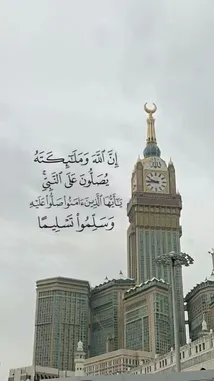 إِنَّ ٱللَّهَ وَمَلَـٰٓئِكَتَهُۥ
يُصَلُّونَ عَلَى ٱلنَّبِىِّ ۚ
يَـٰٓأَيُّهَا ٱلَّذِينَ ءَامَنُوا۟ صَلُّوا۟ عَلَيْهِ
وَسَلِّمُوا۟ تَسْلِيمًا